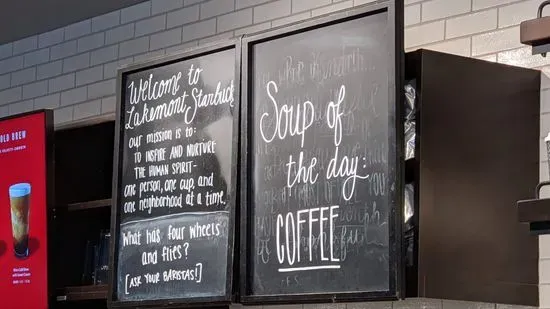 OLD BREW
Welcome to
Lakemont Starbuck
our mission is to:
TO INSPIRE AND NURTURE
THE HUMAN SPIRIT-
one person, one cup, and
one neighborhood at a time.
What has four wheels
and flies?
[ASK YOUR BARISTAS!]
Soup of
the day:
COFFEE